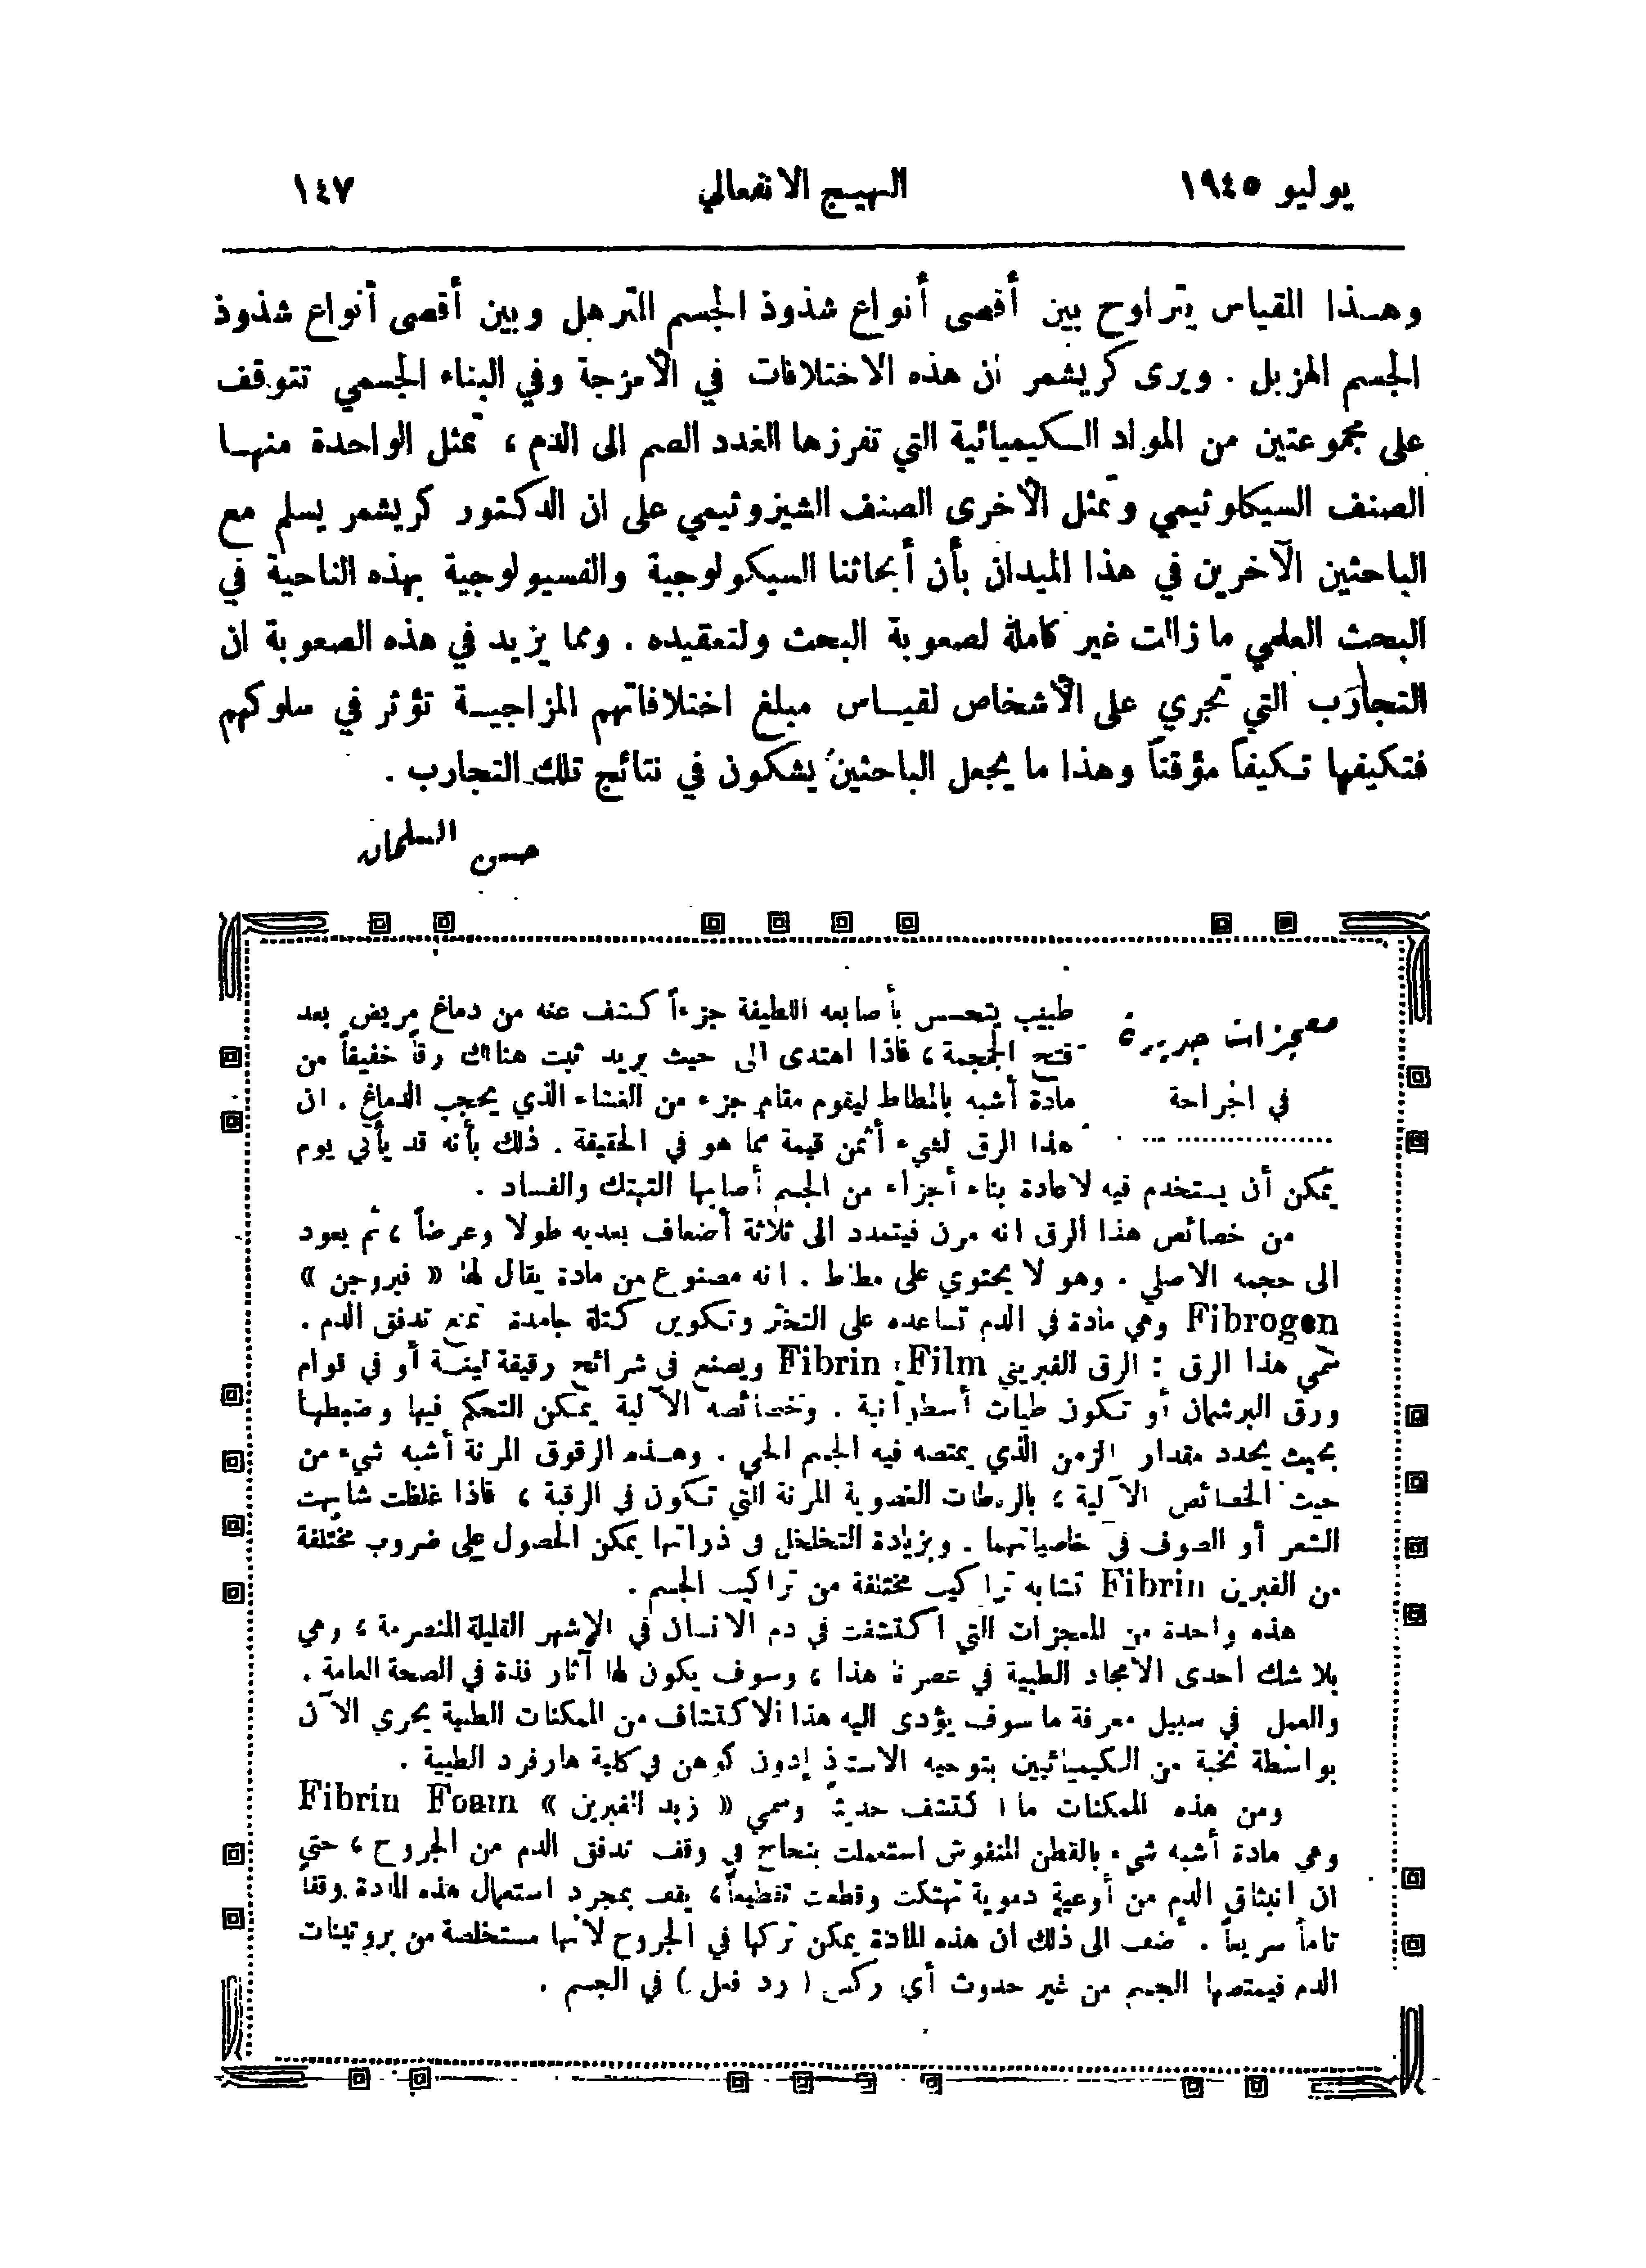 يوليو ١٩٤٥
الهيج الانفعالي
١٤٧
وهذا القياس يتراوح بين أقصى أنواع شذوذ الجسم المترهل وبين أقصى أنواع شذوذ
الجسم الهزيل . ويرى كريشمر أن هذه الاختلافات في الأمزجة وفي البناء الجسمي تتوقف
على مجموعتين من المواد الكيميائية التي تفرزها الغدد الصم الى الدم ، تمثل الواحدة منها
الصنف السيكلوثيمي وتمثل الأخرى الصنف الشيزوثيمي على ان الدكتور كريشمر يسلم مع
الباحثين الآخرين في هذا الميدان بأن أبحاثنا السيكولوجية والفسيولوجية بهذه الناحية في
البحث العلمي ما زالت غير كاملة لصعوبة البحث ولتعقيده . ومما يزيد في هذه الصعوبة ان
التجارب التي تجري على الأشخاص لقياس مبلغ اختلافاتهم المزاجية تؤثر في سلوكهم
فتكيفها تكيفاً مؤقتاً وهذا ما يجعل الباحثين يشكون في نتائج تلك التجارب .
حسن السلمان
معجزات جديدة
في الجراحة
طبيب يتحسس بأصابعه اللطيفة جزءاً كشف عنه من دماغ مريض بعد
فتح الجمجمة ، فاذا اهتدى الى حيث يريد ثبت هناك رقاً خفيفاً من
مادة أشبه بالمطاط ليقوم مقام جزء من الغشاء الذي يحجب الدماغ . ان
هذا الرق لشيء أثمن قيمة مما هو في الحقيقة . ذلك بأنه قد يأتي يوم
يمكن أن يستخدم فيه لاعادة بناء أجزاء من الجسم أصابها التهتك والفساد .
من خصائص هذا الرق انه مرن فيتمدد الى ثلاثة أضعاف بعديه طولا وعرضاً ، ثم يعود
الى حجمه الاصلي . وهو لا يحتوي على مطاط . انه مصنوع من مادة يقال لها « فبروجن »
Fibrogen وهي مادة في الدم تساعده على التخثر وتكوين كتلة جامدة تمنع تدفق الدم .
سمي هذا الرق : الرق الفبريني Fibrin Film ويصنع في شرائح رقيقة لينة أو في قوام
ورق البرشمان أو تكون طيات أسطوانية . وخصائصه الآلية يمكن التحكم فيها وضبطها
بحيث يحدد مقدار الزمن الذي يمتصه فيه الجسم الحي . وهذه الرقوق المرنة أشبه شيء من
حيث الخصائص الآلية ، بالربطات العضوية المرنة التي تكون في الرقبة ، فاذا غلظت شابهت
الشعر أو الصوف في خاصياتهما . وبزيادة التخلخل في ذراتها يمكن الحصول على ضروب مختلفة
من الفبرين Fibrin تشابه تراكيب مختلفة من تراكيب الجسم .
هذه واحدة من المعجزات التي اكتشفت في دم الانسان في الاشهر القليلة المنصرمة ، وهي
بلا شك احدى الامجاد الطبية في عصرنا هذا ، وسوف يكون لها آثار فذة في الصحة العامة .
والعمل في سبيل معرفة ما سوف يؤدى اليه هذا الاكتشاف من الممكنات الطبية يجري الآن
بواسطة نخبة من الكيميائيين بتوجيه الاستاذ إدون كوهن في كلية هارفرد الطبية .
ومن هذه الممكنات ما اكتشف حديثاً وسمي « زبد الفبرين » Fibrin Foam
وهي مادة أشبه شيء بالقطن المنفوش استعملت بنجاح في وقف تدفق الدم من الجروح ، حتى
ان انبثاق الدم من أوعية دموية تهتكت وقطعت تقطيعاً ، يقف بمجرد استعمال هذه المادة وقفاً
تاماً سريعاً . أضف الى ذلك ان هذه المادة يمكن تركها في الجروح لأنها مستخلصة من بروتينات
الدم فيمتصها الجسم من غير حدوث أي ركس ( رد فعل ) في الجسم .